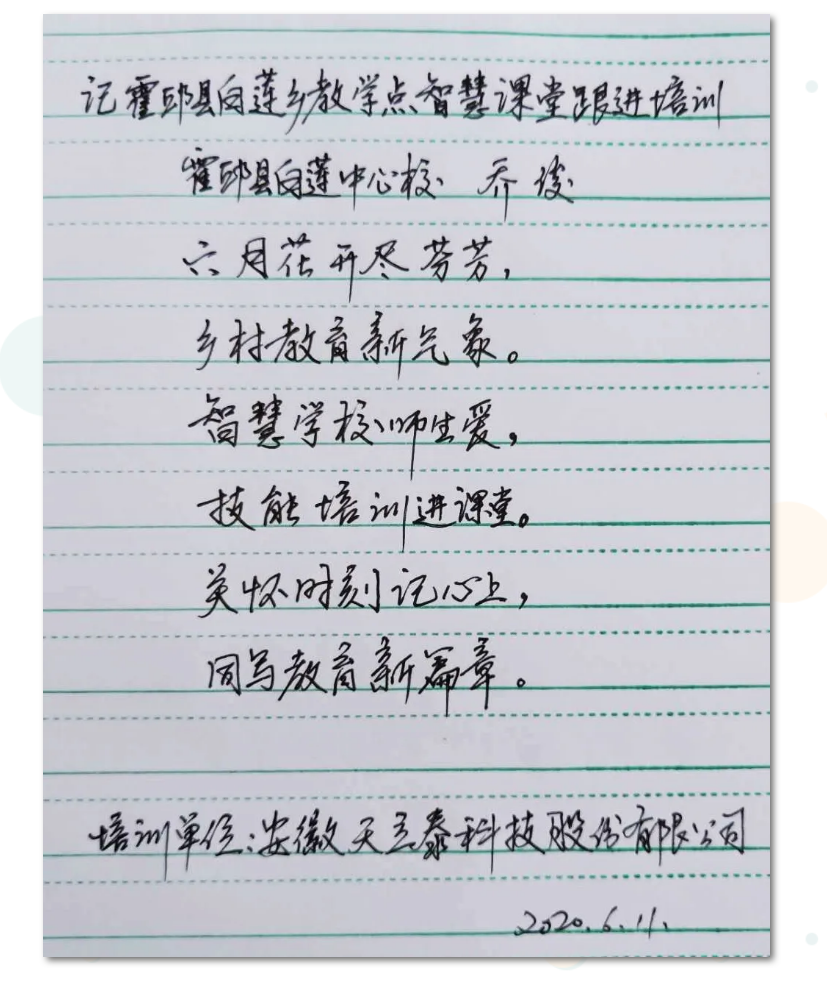 记霍邱县白莲乡教学点智慧课堂跟进培训
霍邱县白莲中心校 乔俊
六月花开尽芬芳,
乡村教育新气象。
智慧学校师生爱,
技能培训进课堂。
关怀时刻记心上,
同写教育新篇章。
培训单位:安徽天立泰科技股份有限公司
2020.6.11.